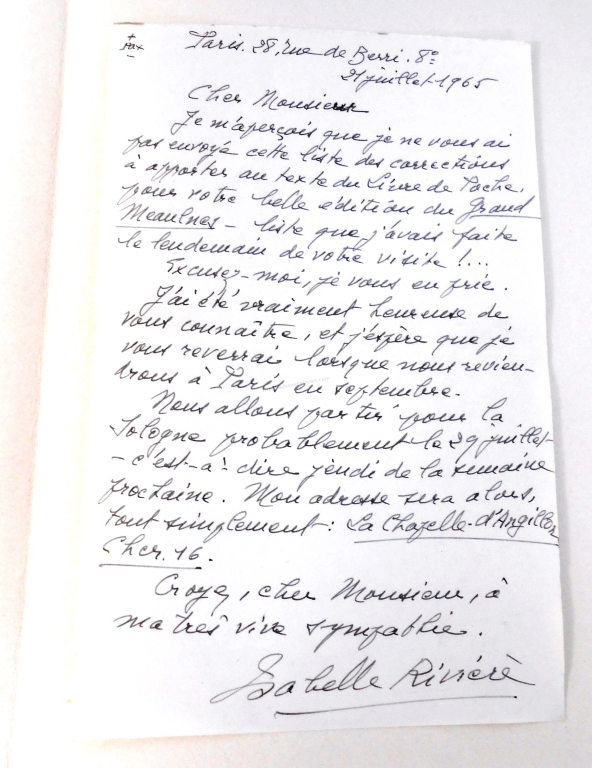 +
Pax
Paris. 28, rue de Berri. 8e
21 juillet 1965
Cher Monsieur
Je m'aperçois que je ne vous ai
pas envoyé cette liste des corrections
à apporter au texte du Livre de Poche,
pour votre belle édition du Grand
Meaulnes – liste que j'avais faite
le lendemain de votre visite !...
Excusez-moi, je vous en prie.
J'ai été vraiment heureuse de
vous connaître, et j'espère que je
vous reverrai lorsque nous revien-
drons à Paris en septembre.
Nous allons partir pour la
Sologne probablement le 29 juillet
– c'est-à-dire jeudi de la semaine
prochaine. Mon adresse sera alors,
tout simplement : La Chapelle-d'Angillon
Cher. 16.
Croyez, cher Monsieur, à
ma très vive sympathie.
Isabelle Rivière